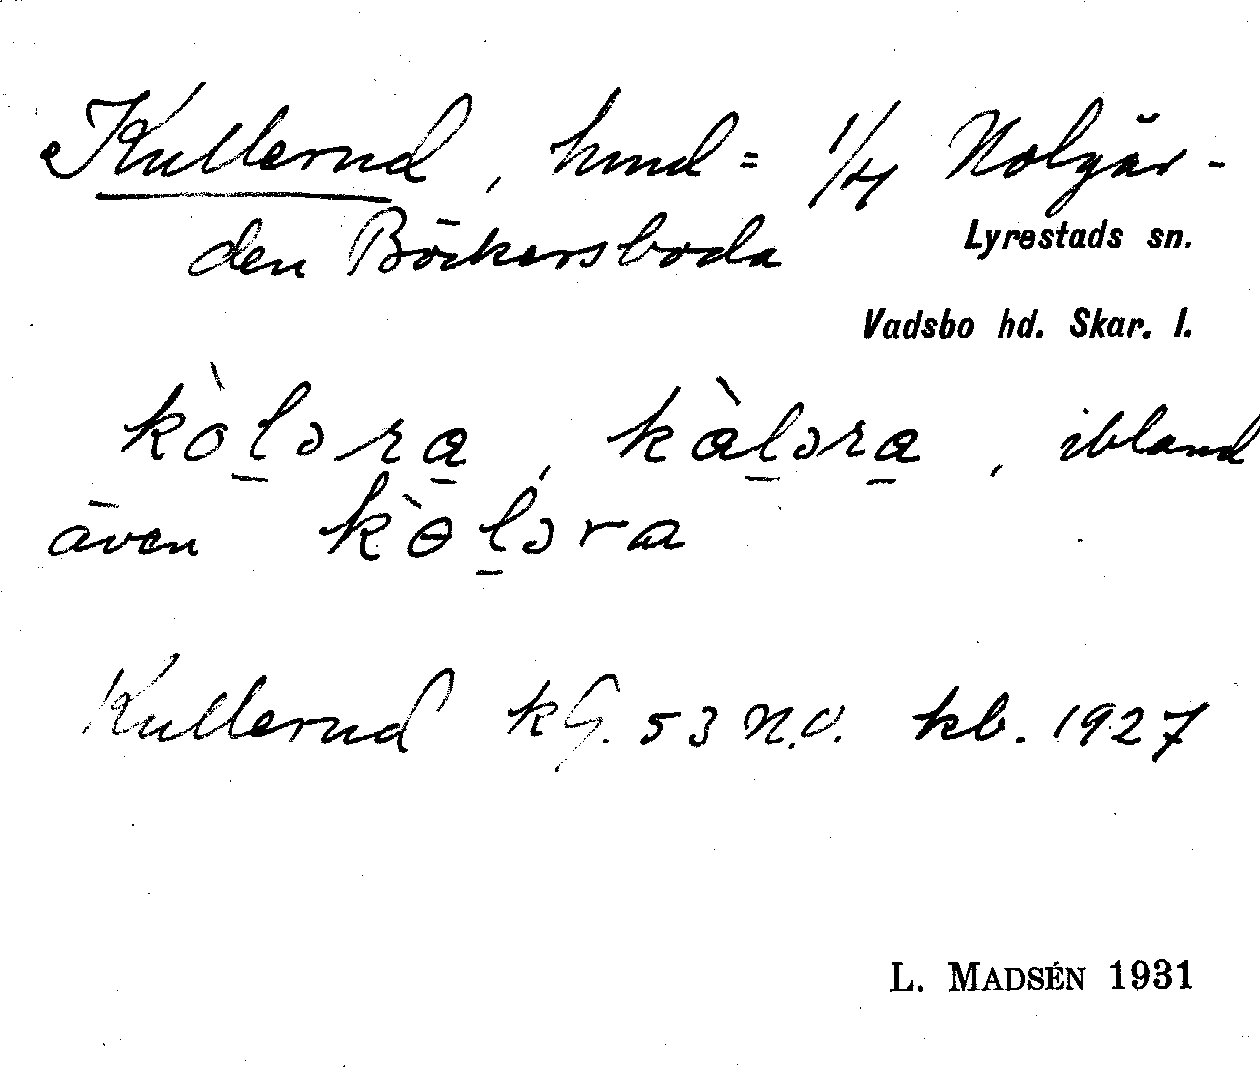 Kullerud, hmd = 1/4 Nolgår-
den Böckersboda
Lyrestads sn.
Vadsbo hd. Skar. l.
kòḻəra̱, kàḻəra̱, ibland
även kɵ̀ḻəra
Kullerud kG. 53 N.O. kb. 1927
L. MADSÉN 1931